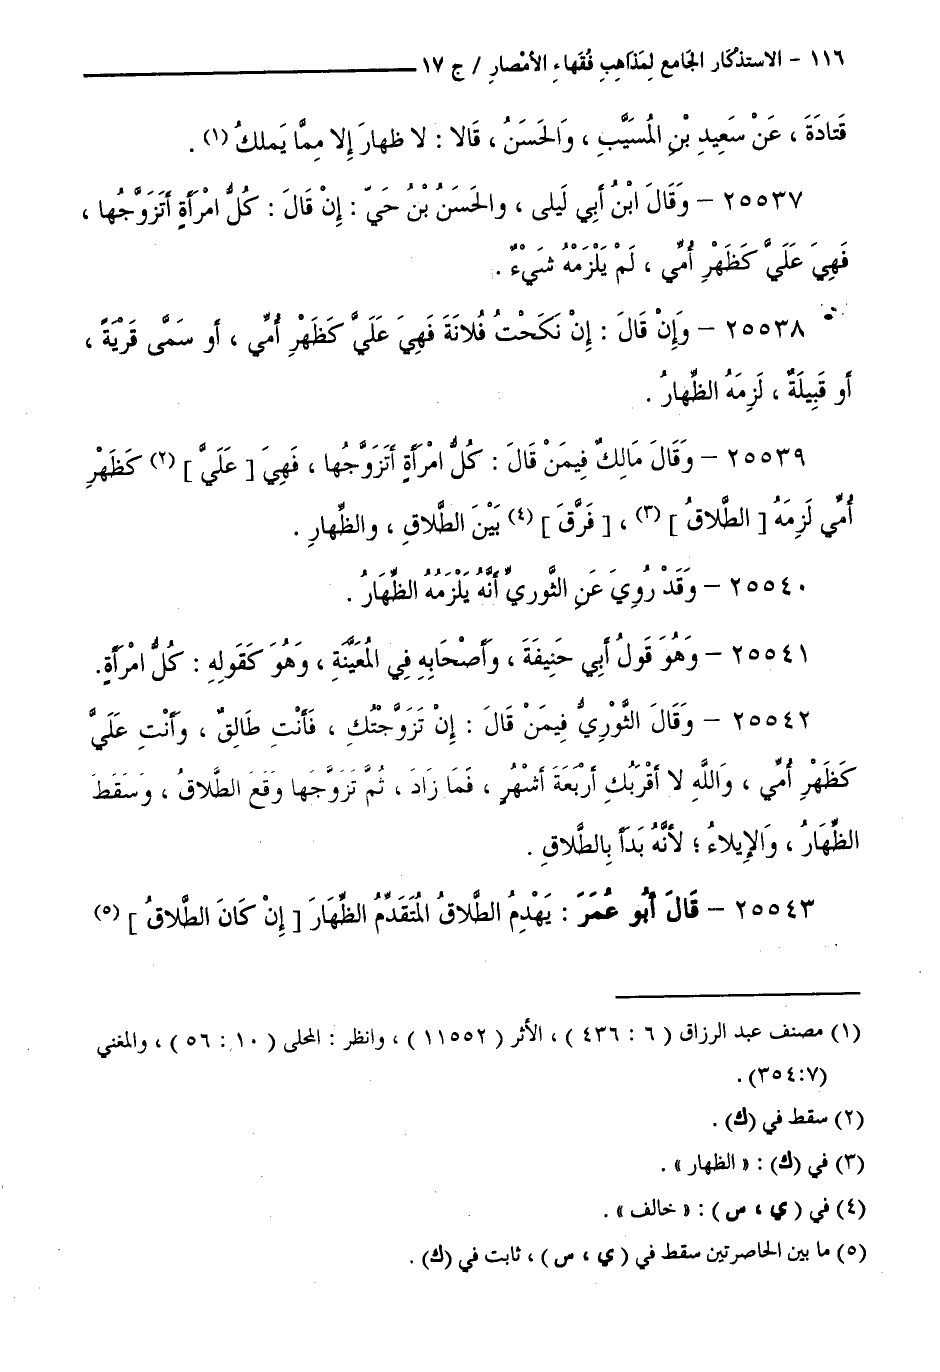 ١١٦ - الاستذكار الجامع لِمَذاهِبِ فُقَهاءِ الأمْصارِ / ج ١٧
قَتادَةَ ، عَنْ سَعِيدِ بْنِ المُسَيَّبِ ، وَالحَسَنُ ، قَالا : لا ظهارَ إِلا مِمَّا يَملكُ (١) .
٢٥٥٣٧ - وَقَالَ ابْنُ أبِي لَيلى ، والحَسَنُ بْنُ حَيّ : إِنْ قَالَ : كُلُّ امْرَأةٍ أتَزَوَّجُها ،
فَهِيَ عَلَيَّ كَظَهْرِ أُمِّي ، لَمْ يَلْزَمْهُ شَيْءٌ .
٢٥٥٣٨ - وَإِنْ قَالَ : إِنْ نَكَحْتُ فُلانَةَ فَهِيَ عَلَيَّ كَظَهْرِ أُمِّي ، أو سَمَّى قَرْيَةً ،
أو قَبِيلَةٌ ، لَزِمَهُ الظِّهارُ .
٢٥٥٣٩ - وَقَالَ مَالِكٌ فِيمَنْ قَالَ : كُلُّ امْرَأةٍ أتَزَوَّجُها ، فَهِيَ [ عَلَيَّ ] (٢) كَظَهْرِ
أُمِّي لَزِمَهُ [ الطَّلاقُ ] (٣) ، [ فَرَّقَ ] (٤) بَيْنَ الطَّلاقِ ، والظِّهارِ .
٢٥٥٤٠ - وَقَدْ رُوِيَ عَنِ الثَّورِيِّ أَنَّهُ يَلْزَمُهُ الظِّهَارُ .
٢٥٥٤١ - وَهُوَ قَولُ أبِي حَنِيفَةَ ، وَأصْحَابِهِ فِي المُعَيَّنَةِ ، وَهُوَ كَقَولِهِ : كُلُّ امْرَأةٍ.
٢٥٥٤٢ - وَقَالَ الثَّوْرِيُّ فِيمَنْ قَالَ : إِنْ تَزَوَّجْتُكِ ، فَأَنْتِ طَالِقٌ ، وَأنْتِ عَلَيَّ
كَظَهْرِ أُمِّي ، وَاللَّهِ لا أقْرَبُكِ أرْبَعَةَ أشْهُرٍ ، فَمَا زَادَ ، ثُمَّ تَزَوَّجَها وَقَعَ الطَّلاقُ ، وَسَقَطَ
الظِّهَارُ ، وَالإِيلاءُ ؛ لأنَّهُ بَدَأَ بِالطَّلاقِ .
٢٥٥٤٣ - قَالَ أَبُو عُمَرَ : يَهْدِمُ الطَّلاقُ المُتَقَدِّمُ الظِّهَارَ [ إِنْ كَانَ الطَّلاقُ ] (٥)
(١) مصنف عبد الرزاق ( ٦ : ٤٣٦ ) ، الأثر ( ١١٥٥٢ ) ، وانظر : المحلى ( ١٠ : ٥٦ ) ، والمغني
(٧:٣٥٤) .
(٢) سقط في (ك) .
(٣) في (ك) : « الظهار » .
(٤) في ( ي ، س ) : « خالف » .
(٥) ما بين الحاصرتين سقط في ( ي ، س ) ، ثابت في (ك) .